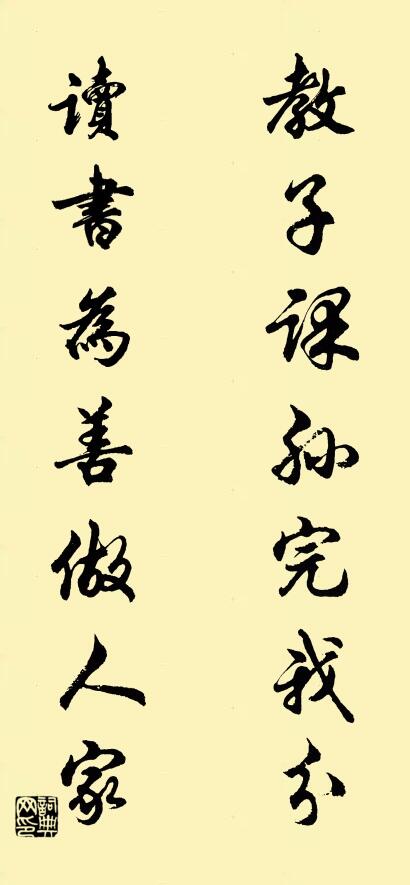 教子課孫完我分
讀書為善做人家
詞典网印